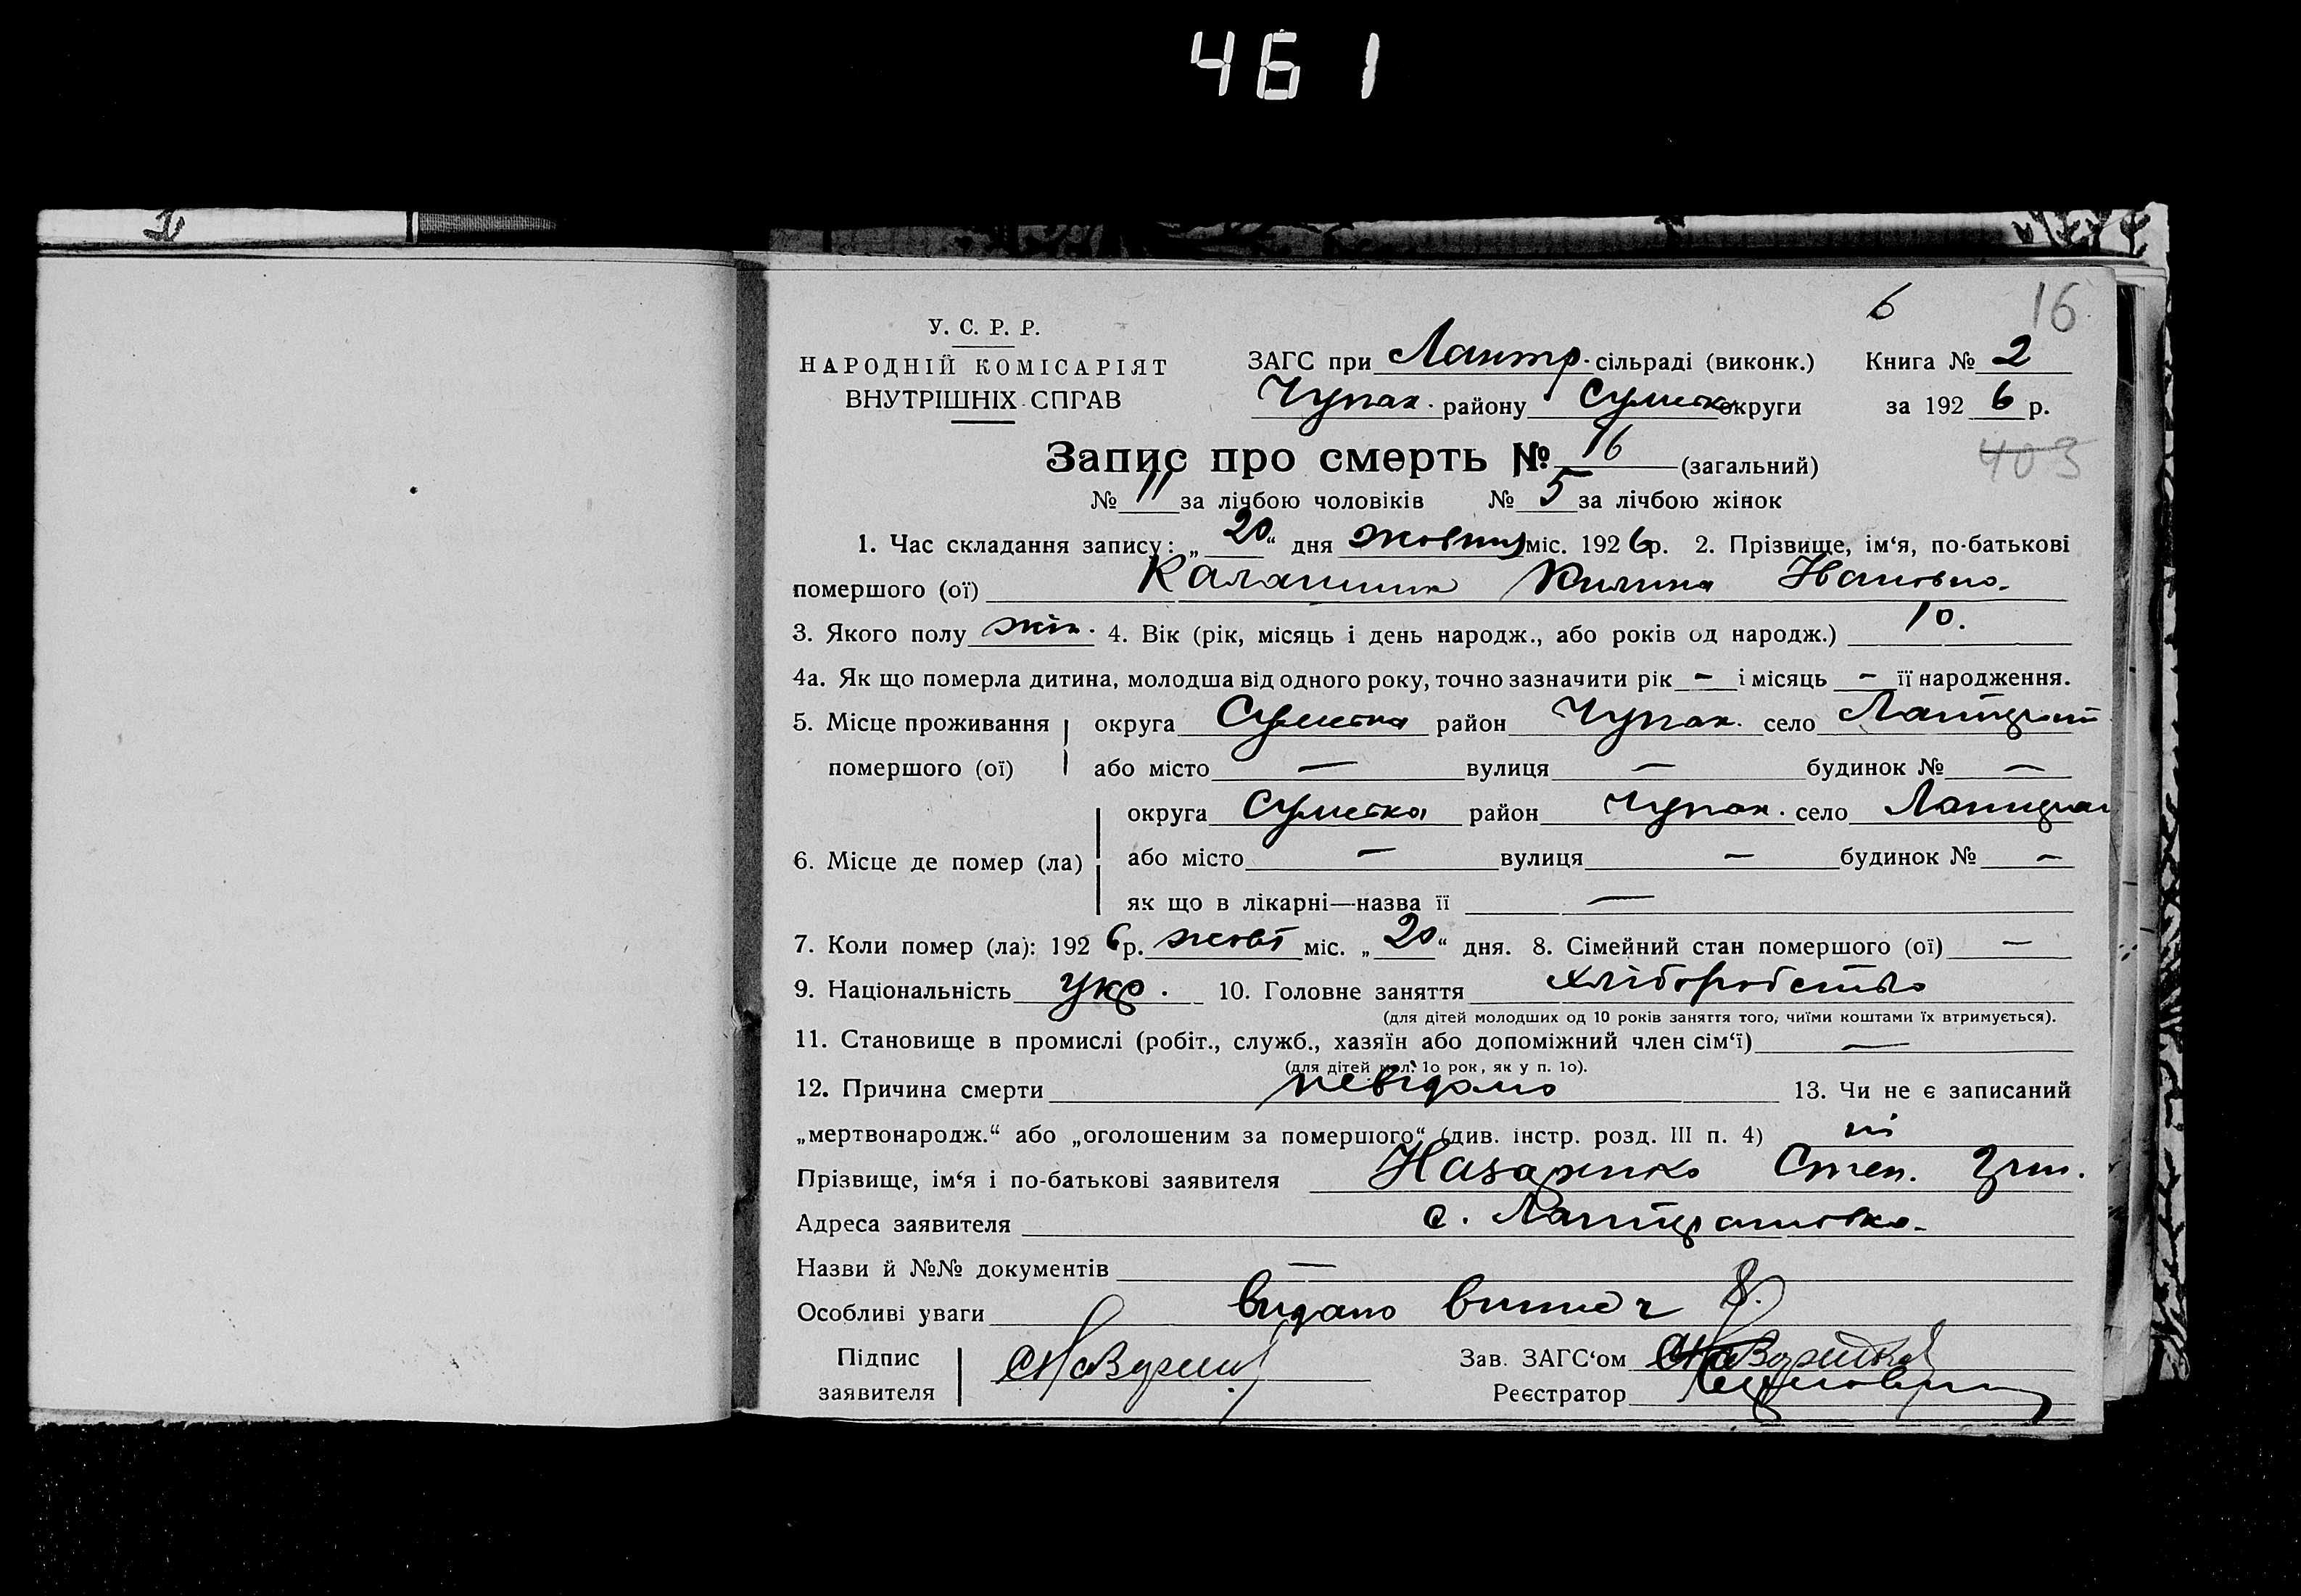 461
6 16
У. С. Р. Р.
НАРОДНІЙ КОМІСАРІЯТ
ВНУТРІШНІХ СПРАВ
ЗАГС при Лантр. сільраді (виконк.) Книга № 2
Чупах. району Сумськ округи за 1926 р.
403
Запис про смерть № 16 (загальний)
№ 11 за лічбою чоловіків № 5 за лічбою жінок
1. Час складання запису: „20“ дня жовтня міс. 1926 р. 2. Прізвище, ім‘я, по-батькові
помершого (ої) Калашник Килина Ивановна.
3. Якого полу жін. 4. Вік (рік, місяць і день народж., або років од народж.) 10.
4а. Як що померла дитина, молодша від одного року, точно зазначити рік – і місяць – її народження.
5. Місце проживання округа Сумська район Чупах. село
помершого (ої) або місто — вулиця — будинок № —
округа Сумська район Чупах. село
6. Місце де помер (ла) або місто — вулиця — будинок № —
як що в лікарні—назва її —
7. Коли помер (ла): 1926 р. жовт міс. „20“ дня. 8. Сімейний стан помершого (ої) —
9. Національність укр. 10. Головне заняття хліборобство
(для дітей молодших од 10 років заняття того, чиїми коштами їх втримується).
11. Становище в промислі (робіт., служб., хазяїн або допоміжний член сім‘ї) —
(для дітей мол. 10 рок, як у п. 10).
12. Причина смерти невідомо 13. Чи не є записаний
„мертвонародж.“ або „оголошеним за помершого“ (див. інстр. розд. III п. 4) ні
Прізвище, ім‘я і по-батькові заявителя Назаренко Степ.
Адреса заявителя с.
Назви й №№ документів —
Особливі уваги видано
Підпис
заявителя
Зав. ЗАГС‘ом
Реєстратор